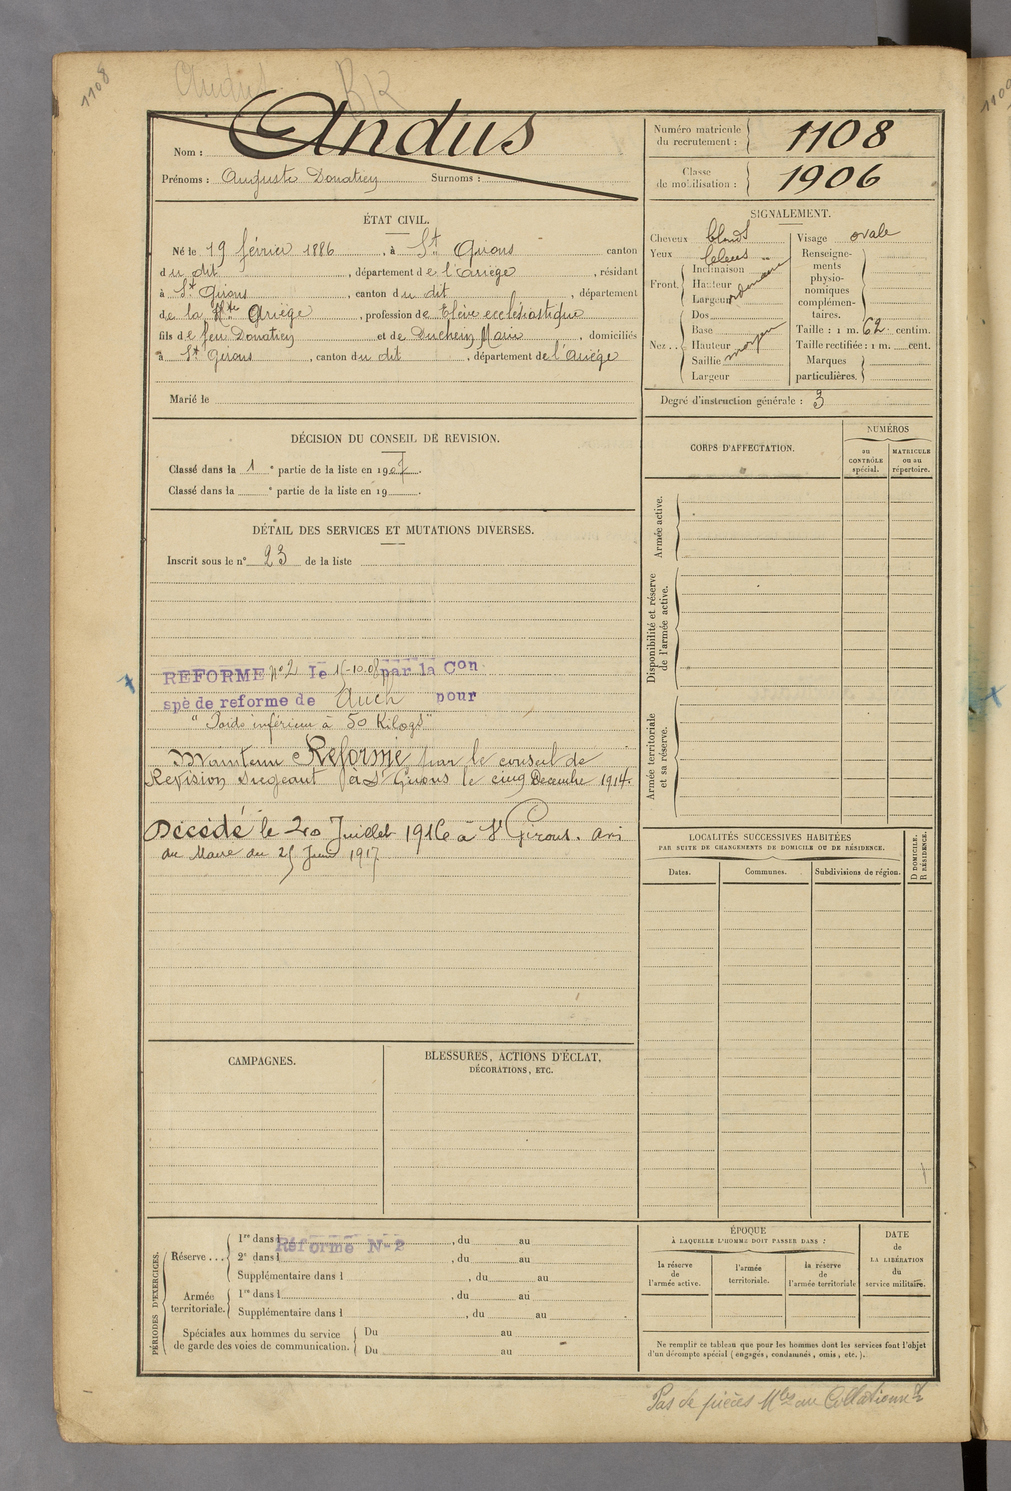 1108
Andus BK
Nom : Andus
Prénoms : Auguste Donatien Surnoms :
Numéro matricule du recrutement : 1108
Classe de mobilisation : 1906
ÉTAT CIVIL.
Né le 19 février 1886, à St Girons canton
du dit, département de l'ariège, résidant
à St Girons, canton du dit, département
de la Ariège, profession de Elève ecclésiastique
fils de feu Donatien et de Duchein Marie, domiciliés
à St Girons, canton du dit, département de l'Ariège
Marié le
SIGNALEMENT.
Cheveux blonds
Yeux bleus
Front. Inclinaison
Hauteur
Largeur
ordinaire
Nez.. Dos
Base
Hauteur
Saillie
Largeur
moyen
Visage ovale
Renseignements physionomiques complémentaires.
Taille : 1 m. 62 centim.
Taille rectifiée : 1 m. cent.
Marques particulières.
Degré d'instruction générale : 3
DÉCISION DU CONSEIL DE REVISION.
Classé dans la 1e partie de la liste en 1907.
Classé dans la e partie de la liste en 19 .
DÉTAIL DES SERVICES ET MUTATIONS DIVERSES.
Inscrit sous le n° 23 de la liste
REFORME No 2 le 15-10-08 par la Con
spè de reforme de Auch pour
"Poids inférieur à 50 Kilogs"
Maintenu Reformé par le conseil de
Revision siégeant à St Girons le cinq Decembre 1914.
Décédé le 20 Juillet 1916 à St Girons. avis
du Maire du 25 Juin 1917
CORPS D'AFFECTATION.
NUMÉROS
au CONTRÔLE spécial.
MATRICULE ou au répertoire.
Armée active.
Disponibilité et réserve de l'armée active.
Armée territoriale et sa réserve.
LOCALITÉS SUCCESSIVES HABITÉES
PAR SUITE DE CHANGEMENTS DE DOMICILE OU DE RÉSIDENCE.
Dates.
Communes.
Subdivisions de région.
D DOMICILE.
R RÉSIDENCE.
CAMPAGNES.
BLESSURES, ACTIONS D'ÉCLAT,
DÉCORATIONS, ETC.
PÉRIODES D'EXERCICES.
Réserve ... 1re dans l , du au
Réformé N-2
2e dans l , du au
Supplémentaire dans l , du au
Armée territoriale. 1re dans l , du au
Supplémentaire dans l , du au
Spéciales aux hommes du service
de garde des voies de communication. Du au
Du au
ÉPOQUE
À LAQUELLE L'HOMME DOIT PASSER DANS :
la réserve de l'armée active.
l'armée territoriale.
la réserve de l'armée territoriale
DATE de LA LIBÉRATION du service militaire.
Ne remplir ce tableau que pour les hommes dont les services font l'objet
d'un décompte spécial (engagés, condamnés, omis, etc.).
Pas de pièces au